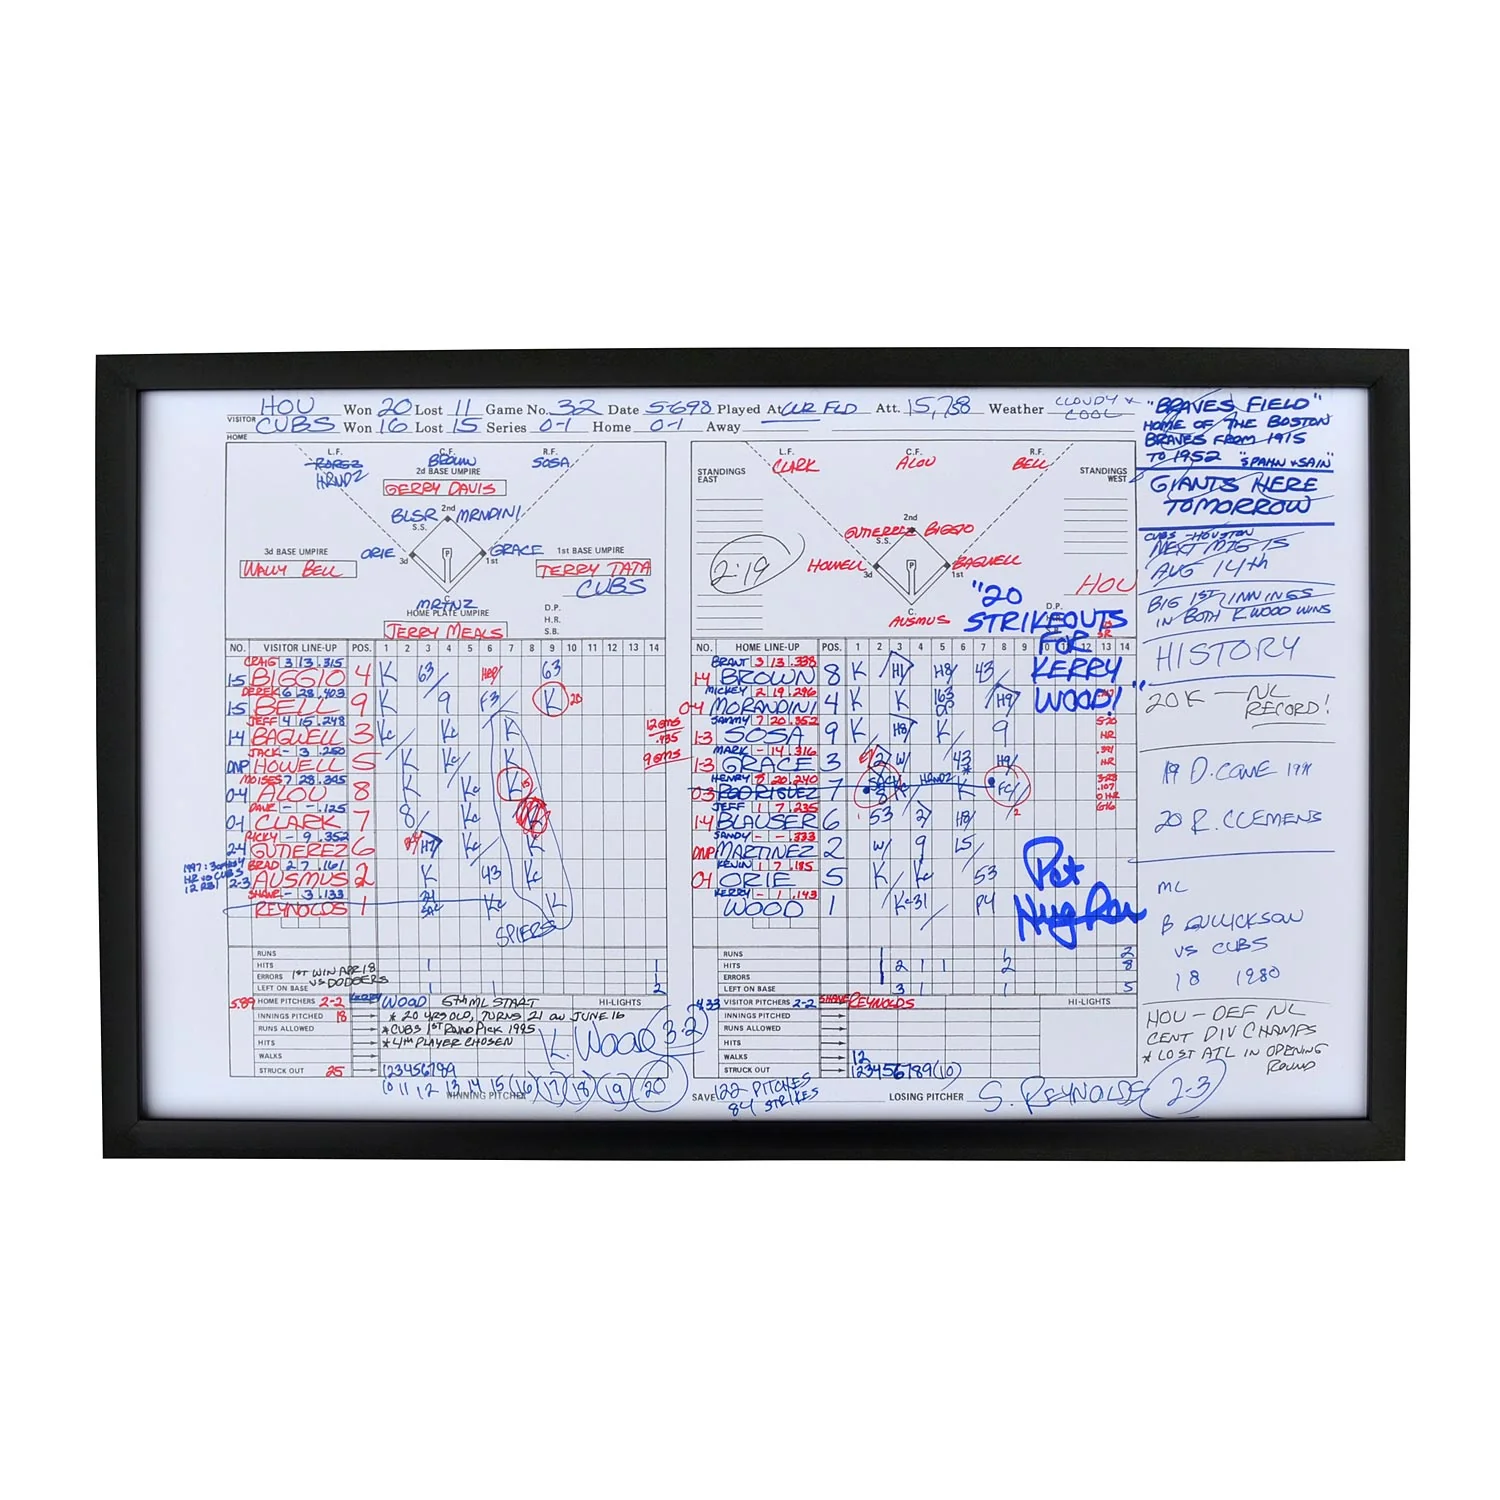 VISITOR HOU Won 20 Lost 11 Game No. 32 Date 5-6-98 Played At WR FLD Att. 15,758 Weather CLOUDY & COOL
HOME CUBS Won 16 Lost 15 Series 0-1 Home 0-1 Away
L.F. C.F. R.F.
BROWN SOSA
HRNDZ
2d BASE UMPIRE
GERRY DAVIS
2nd
BLSR MRNDINI
S.S.
3d BASE UMPIRE ORIE GRACE 1st BASE UMPIRE
WALLY BELL 3d P 1st TERRY TATA
CUBS
C.
MRTNZ
HOME PLATE UMPIRE
JERRY MEALS
D.P.
H.R.
S.B.
L.F. C.F. R.F.
CLARK ALOU BELL
STANDINGS EAST
STANDINGS WEST
2nd
GUTIERREZ BIGGIO
S.S.
2:19
HOWELL BAGWELL
3d P 1st
HOU
C.
AUSMUS
D.P.
"20
STRIKEOUTS
FOR
KERRY
WOOD!"
NO. VISITOR LINE-UP POS. 1 2 3 4 5 6 7 8 9 10 11 12 13 14
CRAIG 3 13 .315
1-5 BIGGIO 4 K 63 63
DEREK 6 28 .403
1-5 BELL 9 K 9 F3 K 20
JEFF 4 15 .248
1-4 BAGWELL 3 Kc Kc K
JACK - 3 .250
DNP HOWELL 5 K Kc K
MOISES 7 28 .345
0-4 ALOU 8 K Kc K
DAVE - - .125
0-1 CLARK 7 8 Kc K
RICKY - 9 .352
2-4 GUTIEREZ 6 H7 Kc K
BRAD 2 7 .161
2-3 AUSMUS 2 K 43 Kc
SHANE - 3 .133
REYNOLDS 1 34 SAC Kc K
SPIERS
12 RBI
RUNS
HITS 1 1
ERRORS
LEFT ON BASE 1 1 2
1ST WIN APR 18
VS DODGERS
5.89 HOME PITCHERS 2-2 KERRY WOOD 5TH ML START HI-LIGHTS
INNINGS PITCHED 18 * 20 YRS OLD, TURNS 21 ON JUNE 16
RUNS ALLOWED * CUBS 1ST ROUND PICK 1995
HITS * 4TH PLAYER CHOSEN
WALKS
STRUCK OUT 25 123456789
10 11 12 13 14 15 16 17 18 19 20
WINNING PITCHER K. WOOD 3-2
NO. HOME LINE-UP POS. 1 2 3 4 5 6 7 8 9 10 11 12 13 14
BRANT 3 13 .338
1-4 BROWN 8 K H1 H8 43
MICKEY 2 19 .296
0-4 MORANDINI 4 K K 163 H9
SAMMY 7 20 .352
1-3 SOSA 9 K H8 K 9
MARK - 14 .316
1-3 GRACE 3 W 43 H9
HENRY 5 20 .240
0-3 RODRIGUEZ 7 SAC 8 Kc HRNDZ K FC
JEFF 1 7 .235
1-4 BLAUSER 6 53 H8
SANDY - - .333
DNP MARTINEZ 2 W 9 L5
KEVIN 1 7 .185
0-1 ORIE 5 K Kc 53
KERRY - 1 .143
WOOD 1 Kc 31 P4
RUNS 1 1 2
HITS 2 1 1 2 8
ERRORS
LEFT ON BASE 3 1 1 5
4.33 VISITOR PITCHERS 2-2 SHANE REYNOLDS HI-LIGHTS
INNINGS PITCHED
RUNS ALLOWED
HITS
WALKS 12
STRUCK OUT 123456789(10)
SAVE 122 PITCHES
84 STRIKES
LOSING PITCHER S. REYNOLDS 2-3
"BRAVES FIELD"
HOME OF THE BOSTON
BRAVES FROM 1915
TO 1952 "SPAHN & SAIN"
GIANTS HERE
TOMORROW
CUBS - HOUSTON
NEXT MTG IS
AUG 14th
BIG 1ST INNINGS
IN BOTH K WOOD WINS
HISTORY
20 K — NL
RECORD!
19 D. CONE 1991
20 R. CLEMENS
ML
B GULLICKSON
VS CUBS
18 1980
HOU - DEF NL
CENT DIV CHAMPS
* LOST ATL IN OPENING
ROUND
Pat
Hughes